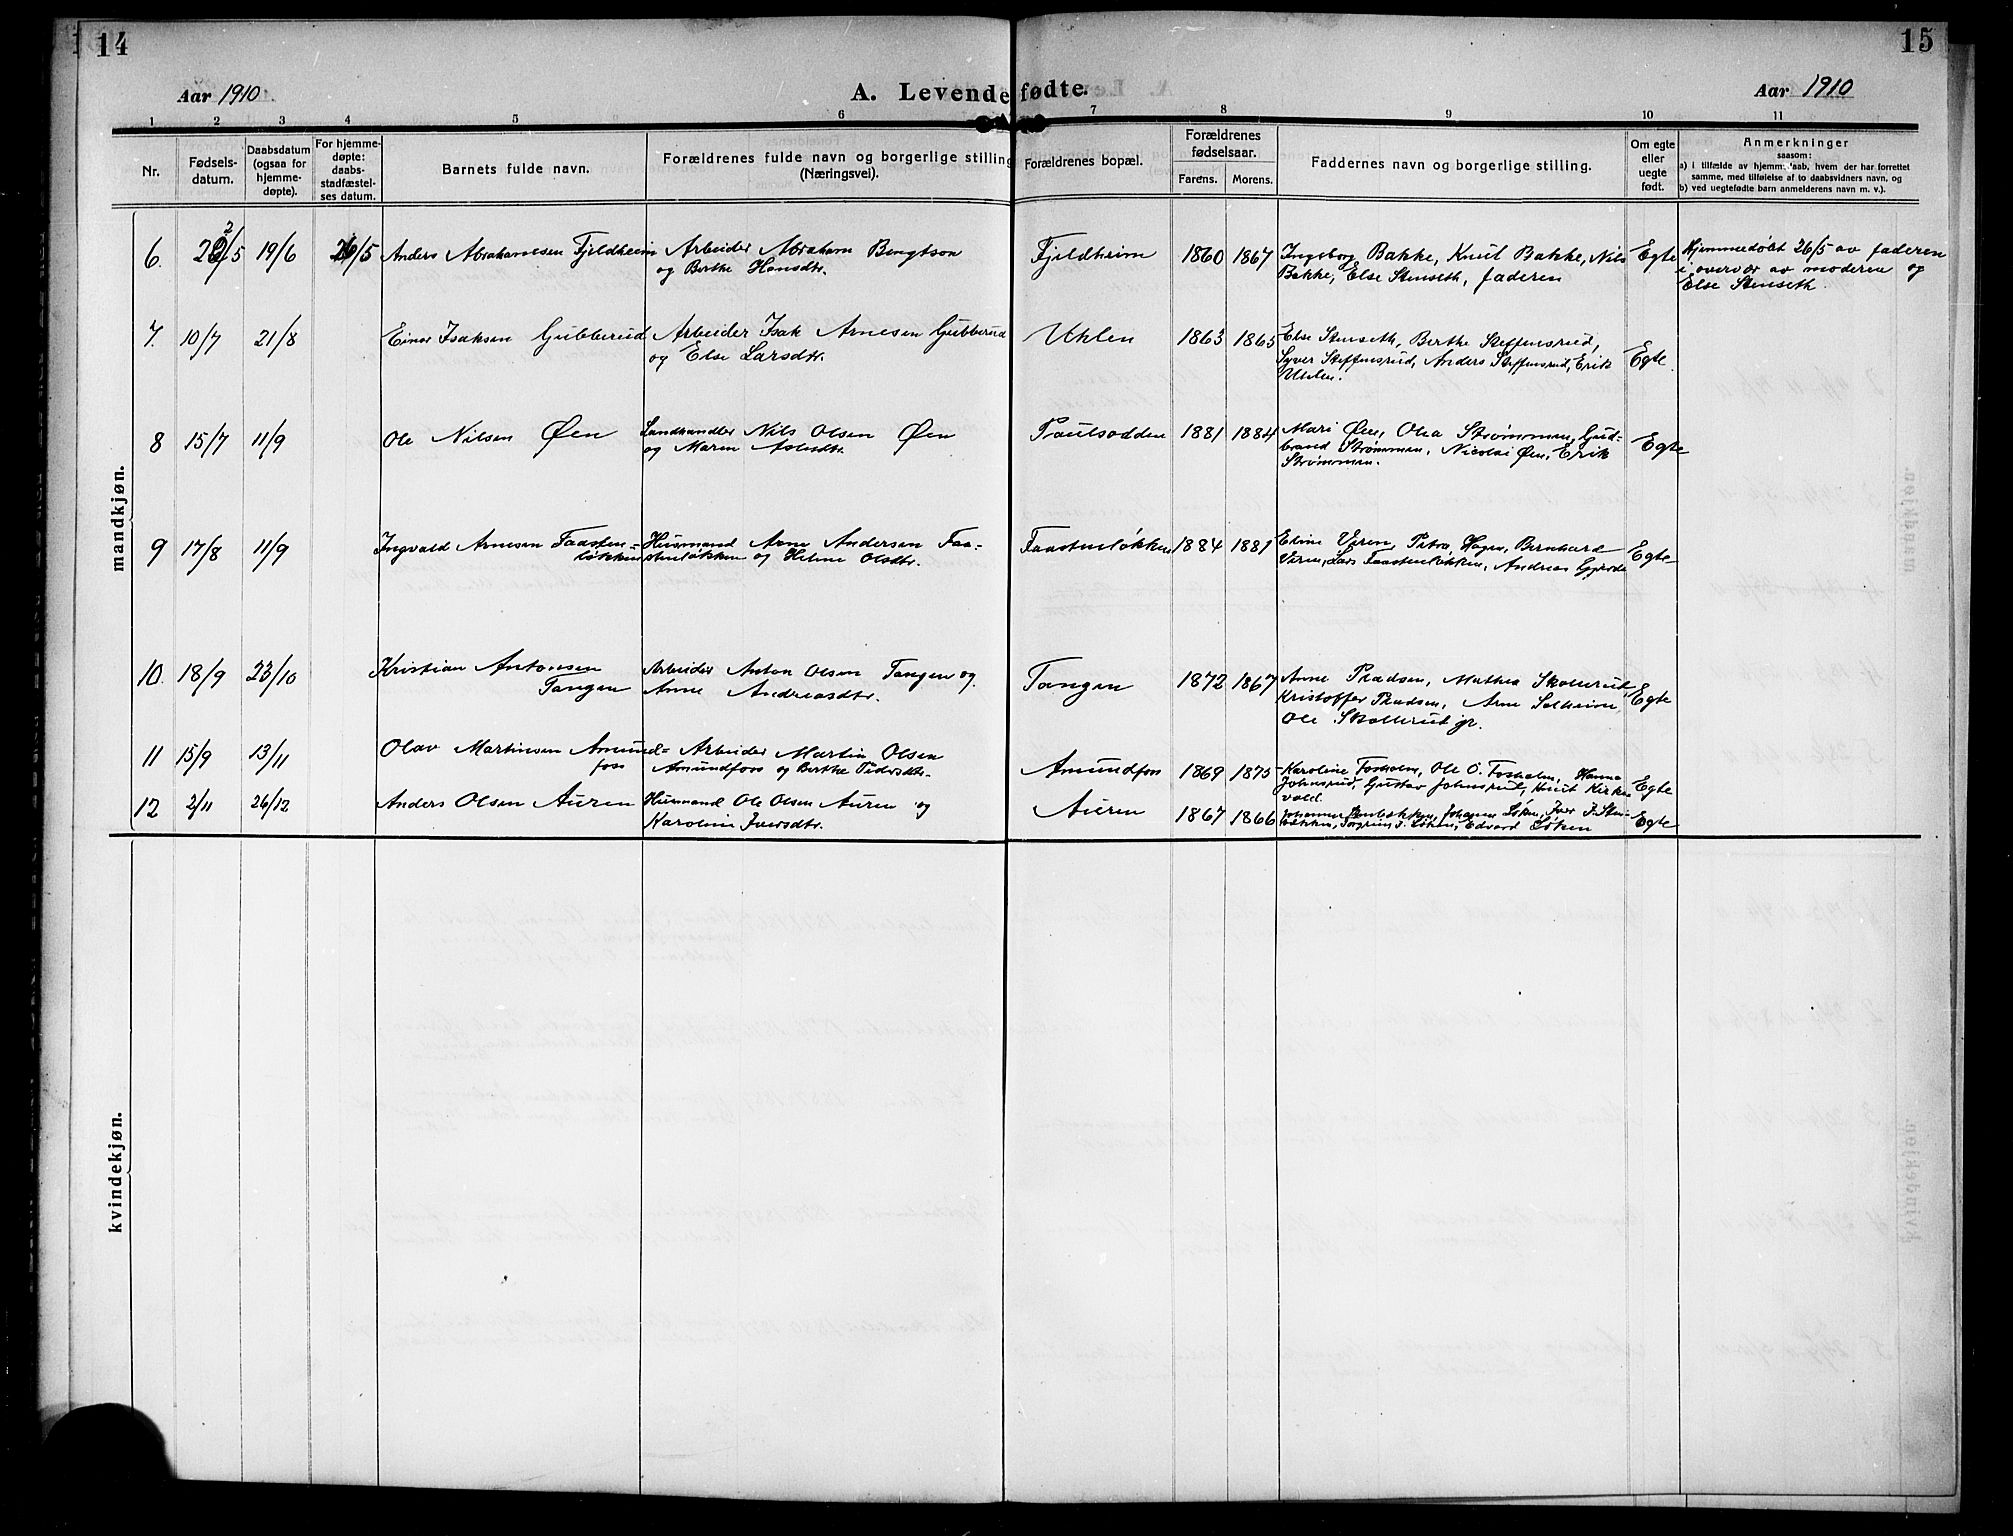 14
15
Aar 1910.
A. Levendefødte.
Aar 1910
1 2 3 4 5 6 7 8 9 10 11
Nr.
Fødsels-
datum.
Daabsdatum
(ogsaa for
hjemme-
døpte).
For hjemme-
døpte:
daabs-
stadfæstel-
ses datum.
Barnets fulde navn.
Forældrenes fulde navn og borgerlige stilling
(Næringsvei).
Forældrenes bopæl.
Forældrenes
fødselsaar.
Farens. Morens.
Faddernes navn og borgerlige stilling.
Om egte
eller
uegte
født.
Anmerkninger
saasom:
a) i tilfælde av hjemmedaab, hvem der har forrettet
samme, med tilføielse af to daabsvidners navn, og
b) ved uegtefødte barn anmelderens navn m. v.).
mandkjøn.
6. 22/5 19/6 26/5 Anders Abrahamsen Fjeldheim Arbeider Abraham Bengtson Fjeldheim 1860 1867 Ingeborg Bakke, Knut Bakke, Nils Egte Hjemmedøbt 26/5 av faderen
og Berthe Hansdtr. Bakke, Else Stenseth, faderen i overvær av moderen og
Else Stenseth.
7. 10/7 21/8 Einar Isaksen Gubberud Arbeider Isak Arnesen Gubberud Uhlen 1863 1865 Else Stenseth, Berthe Steffensrud,
og Else Larsdtr. Syver Steffensrud, Anders Steffensrud, Erik Egte
Uhlen.
8 15/7 11/9 Ole Nilsen Øen Landhandler Nils Olsen Øen Paulsodden 1881 1884 Mari Øen, Olea Strømmen, Gud-
og Maren Aslesdtr. brand Strømmen, Nicolai Øen, Erik Egte
Strømmen.
9 17/8 11/9 Ingvald Arnesen Faasten- Husmand Arne Andersen Faa- Faastenløkken 1884 1881 Eline Viren, Petra Hagen, Bernhard Egte
løkken stenløkken og Helene Olsdtr. Viren, Lars Faastenløkken, Andreas Gjerde
10. 18/9 23/10 Kristian Antonsen Arbeider Anton Olsen Tangen og Tangen 1872 1867 Anne Pladsen, Mathea Skollerud,
Tangen Anne Andreasdtr. Kristoffer Pladsen, Arne Solheim, Egte
Ole Skollerud jr.
11 15/9 13/11 Olav Martinsen Amund- Arbeider Martin Olsen Amundfos 1869 1875 Karoline Fosholm, Ole O. Fosholm, Hanna
foss Amundfoss og Berthe Pedersdtr. Johnsrud, Gustav Johnsrud, Knut Kirke- Egte
vold.
12 2/11 26/12 Anders Olsen Auren Husmand Ole Olsen Auren og Auren 1867 1866 Johannes Løken, Iver J. Sten-
Karoline Iversdtr. bakken, J. Løken, Edvard Løken Egte
kvindekjøn.